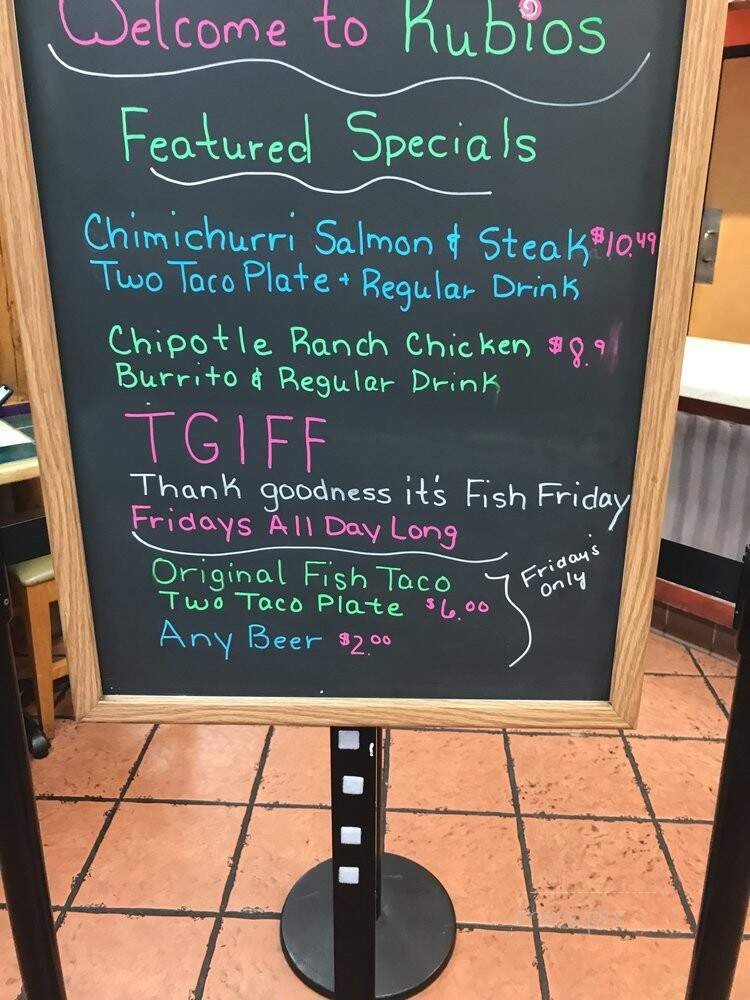 Welcome to Rubios
Featured Specials
Chimichurri Salmon & Steak $10.49
Two Taco Plate + Regular Drink
Chipotle Ranch Chicken $8.91
Burrito & Regular Drink
TGIFF
Thank goodness it's Fish Friday
Fridays All Day Long
Original Fish Taco
Two Taco Plate $6.00
Any Beer $2.00
Friday's
only